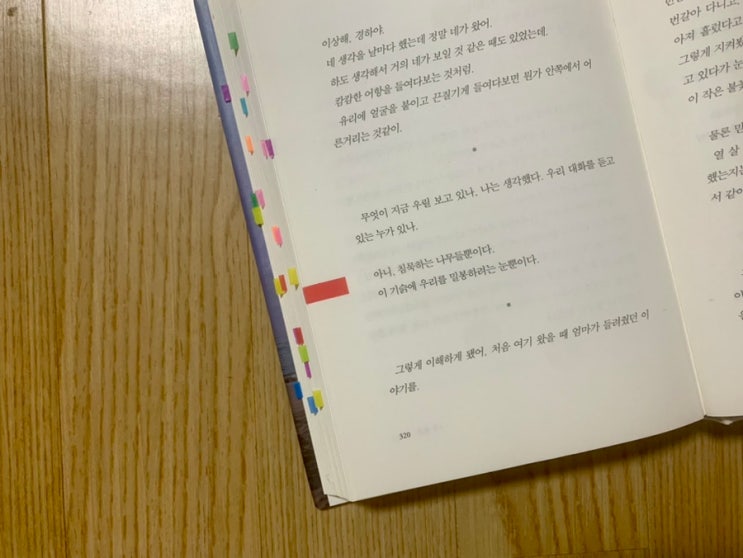 이상해, 경하야.
네 생각을 날마다 했는데 정말 네가 왔어.
하도 생각해서 거의 네가 보일 것 같은 때도 있었는데.
캄캄한 어항을 들여다보는 것처럼.
유리에 얼굴을 붙이고 끈질기게 들여다보면 뭔가 안쪽에서 어
른거리는 것같이.
*
무엇이 지금 우릴 보고 있나, 나는 생각했다. 우리 대화를 듣고
있는 누가 있나.
아니, 침묵하는 나무들뿐이다.
이 기슭에 우리를 밀봉하려는 눈뿐이다.
*
그렇게 이해하게 됐어, 처음 여기 왔을 때 엄마가 들려줬던 이
야기를.
320
번갈아 다니고,
아져 흘렀다고
그렇게 지켜봤
고 있다가 눈
이 작은 불꽃
물론 믿
열 살
했는지는
서 같이